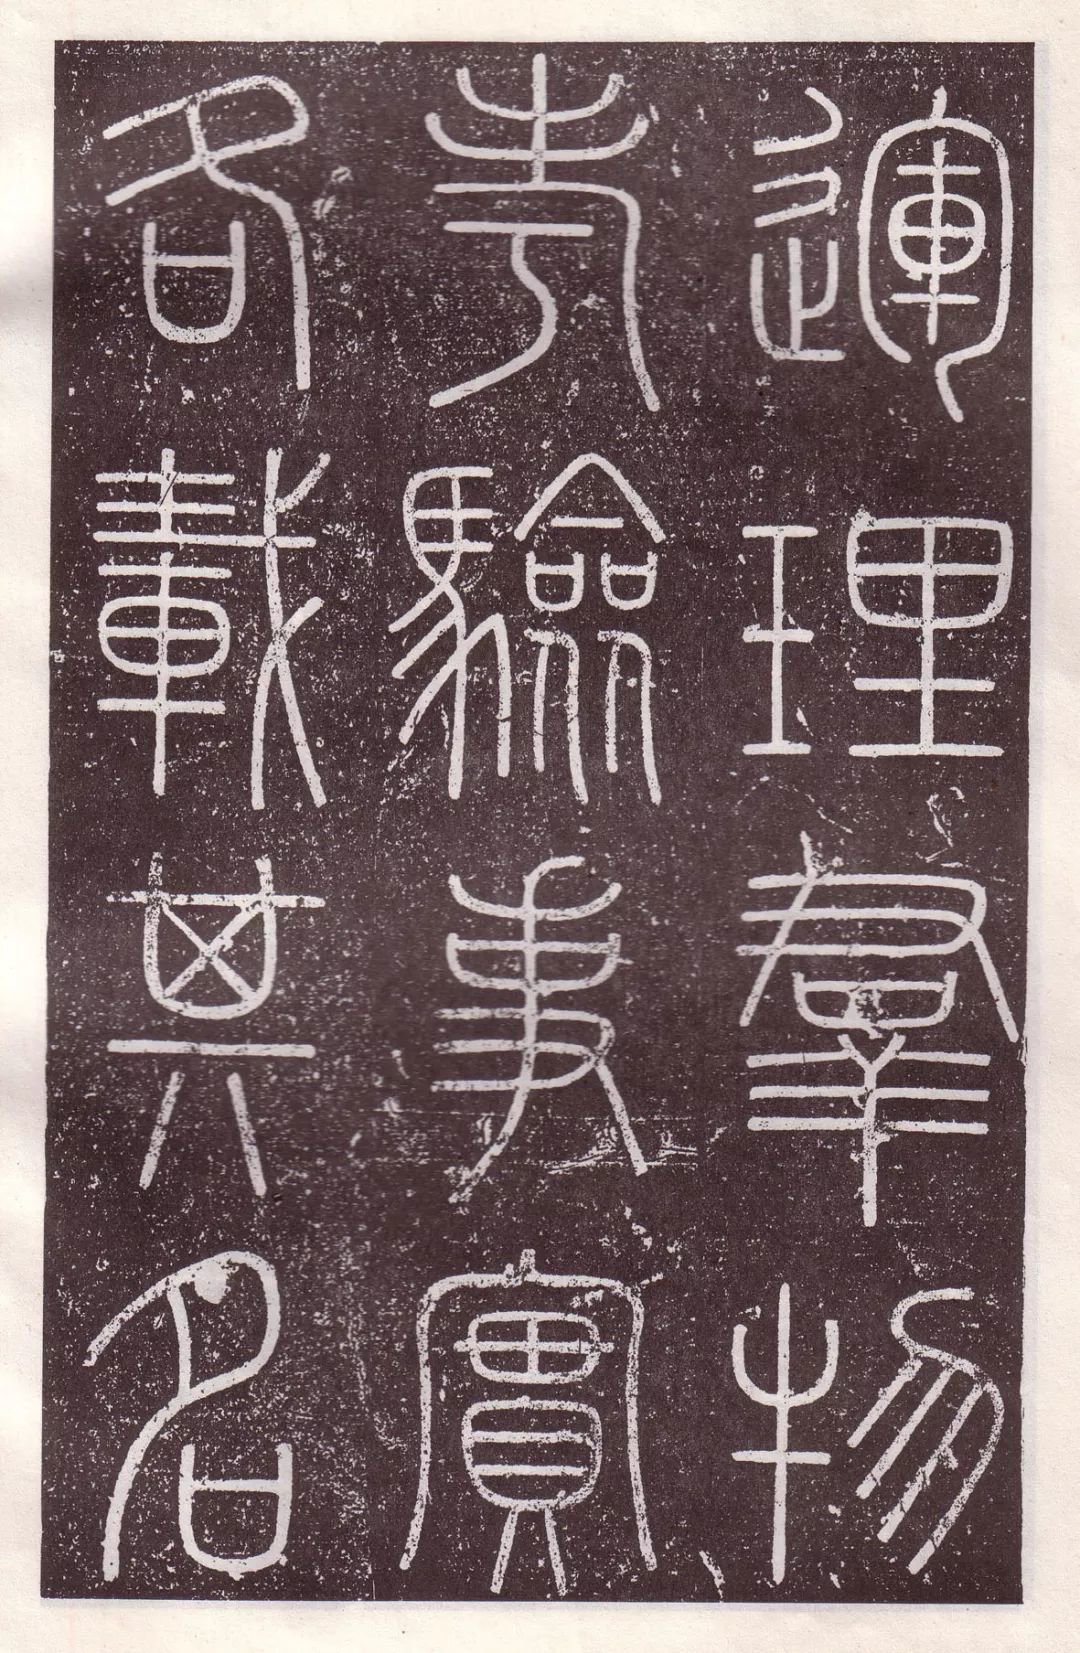 運理羣物
考驗事實
各載其名